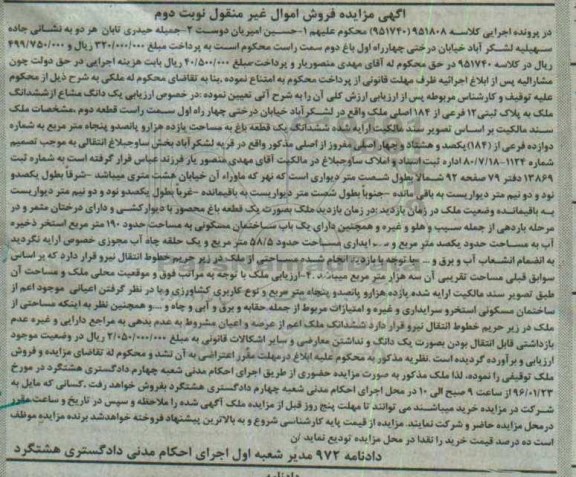 آگهی مزایده فروش اموال غیر منقول نوبت دوم
در پرونده اجرایی کلاسه ۹۵۱۸۰۸ (۹۵۱۷۴۰) محکوم علیهم ۱-حسین امیریان دوست ۲-جمیله حیدری تابان هر دو به نشانی جاده
سهیلیه لشکر آباد خیابان درختی چهارراه اول باغ دوم سمت راست محکوم است به پرداخت مبلغ ۳۲۰/۰۰۰/۰۰۰ ریال و ۴۹۹/۷۵۰/۰۰۰
ریال در کلاسه ۹۵۱۷۴۰ در حق محکوم له آقای مهدی منصوریار و پرداخت مبلغ ۴۰/۵۰۰/۰۰۰ ریال بابت هزینه اجرایی در حق دولت چون
مشارالیه پس از ابلاغ اجرائیه ظرف مهلت قانونی از پرداخت محکوم به امتناع نموده .بنا به تقاضای محکوم له ملکی به شرح ذیل از محکوم
علیه توقیف و کارشناس مربوطه پس از ارزیابی ارزش کلی آن را به شرح آتی تعیین نموده :در خصوص ارزیابی یک دانگ مشاع از ششدانگ
ملک به پلاک ثبتی ۱۲ فرعی از ۱۸۴ اصلی ملک واقع در لشکر آباد خیابان درختی چهار راه اول سمت راست قطعه دوم .مشخصات ملک
سند مالکیت بر اساس تصویر سند مالکیت ارایه شده ششدانگ یک قطعه باغ به مساحت یازده هزار و پانصد و پنجاه متر مربع به شماره
دوازده فرعی از (۱۸۴) یکصد و هشتاد و چهار اصلی مفروز از اصلی مذکور واقع در قریه لشکر آباد بخش ساوجبلاغ انتقالی به موجب تصمیم
شماره ۱۱۲۴-۸۰/۷/۱۸ اداره ثبت اسناد و املاک ساوجبلاغ در مالکیت آقای مهدی منصور یار فرزند عباس قرار گرفته است به شماره ثبت
۱۳۸۶۹ دفتر ۷۹ صفحه ۹۲ شمالا بطول شصت متر دیواری است که نهر که ماوراء آن خیابان هشت متری میباشد -شرقا بطول یکصدو
نود و دو نیم متر دیواریست به باقی مانده -جنوبا بطول شصت متر دیواریست به باقیمانده -غربا بطول یکصدو نود و دو نیم متر دیواریست
به باقیمانده وضعیت ملک در زمان بازدید :در زمان بازدید ملک بصورت یک قطعه باغ محصور با دیوارکشی و دارای درختان مثمر و در
مرحله باردهی از جمله سیب و هلو و غیره و همچنین دارای یک باب ساختمان مسکونی به مساحت حدود ۱۹۰ متر مربع استخر ذخیره
آب به مساحت حدود یکصد متر مربع و ایداری مساحت حدود ۵۸/۵ متر مربع و یک حلقه چاه آب مجوزی خصوص ارایه نگردید
به انضمام انشعاب آب و برق و با توجه با بازدید انجام شده مساحتی از ملک در زیر حریم خطوط انتقال نیرو قرار دارد که بر اساس
سوابق قبلی مساحت تقریبی آن سه هزار متر مربع میباشد .۴-ارزیابی ملک با توجه به مراتب فوق و موقعیت محلی ملک و مساحت آن
طبق تصویر سند مالکیت ارایه شده یازده هزار و پانصدو پنجاه متر مربع و نوع کاربری کشاورزی و با در نظر گرفتن اعیانی موجود اعم از
ساختمان مسکونی استخر و سرایداری و غیره و امتیازات مربوط از جمله حقابه و برق و آبی و چاه و ... و همچنین نظر به اینکه مساحتی از
ملک در زیر حریم خطوط انتقال نیرو قرار دارد ششدانگ ملک اعم از عرصه و اعیان مشروط به عدم بدهی به مراجع دارایی و غیره عدم
بازداشتی قابل انتقال بودن بصورت یک دانگ و نداشتن معارضی و سایر اشکالات قانونی به مبلغ ۲/۰۵۰/۰۰۰/۰۰۰ ریال در وضعیت موجود
ارزیابی و برآورده گردیده است .نظریه مذکور به محکوم علیه ابلاغ در مهلت مقرر اعتراضی به آن نشد و محکوم له تقاضای مزایده و فروش
ملک توقیفی را نموده، لذا ملک مذکور به صورت مزایده حضوری از طریق اجرای احکام مدنی شعبه چهارم دادگستری هشتگرد در مورخ
۹۶/۰۱/۲۳ از ساعت ۹ صبح الی ۱۰ در محل اجرای احکام مدنی شعبه چهارم دادگستری هشتگرد بفروش خواهد رفت .کسانی که مایل به
شرکت در مزایده خرید میباشند می توانند تا مهلت پنج روز قبل از مزایده ملک آگهی شده را ملاحظه و سپس در تاریخ و ساعت مقرر
در محل مزایده حاضر و شرکت نمایند. مزایده از قیمت پایه کارشناسی شروع و به بالاترین پیشنهاد فروخته خواهد شد برنده مزایده موظف
است ده درصد قیمت خرید را نقدا در محل مزایده تودیع نماید
دادنامه ۹۷۲ مدیر شعبه اول اجرای احکام مدنی دادگستری هشتگرد